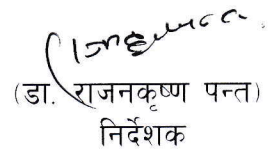 (डा. राजनकृष्ण पन्त)
निर्देशक